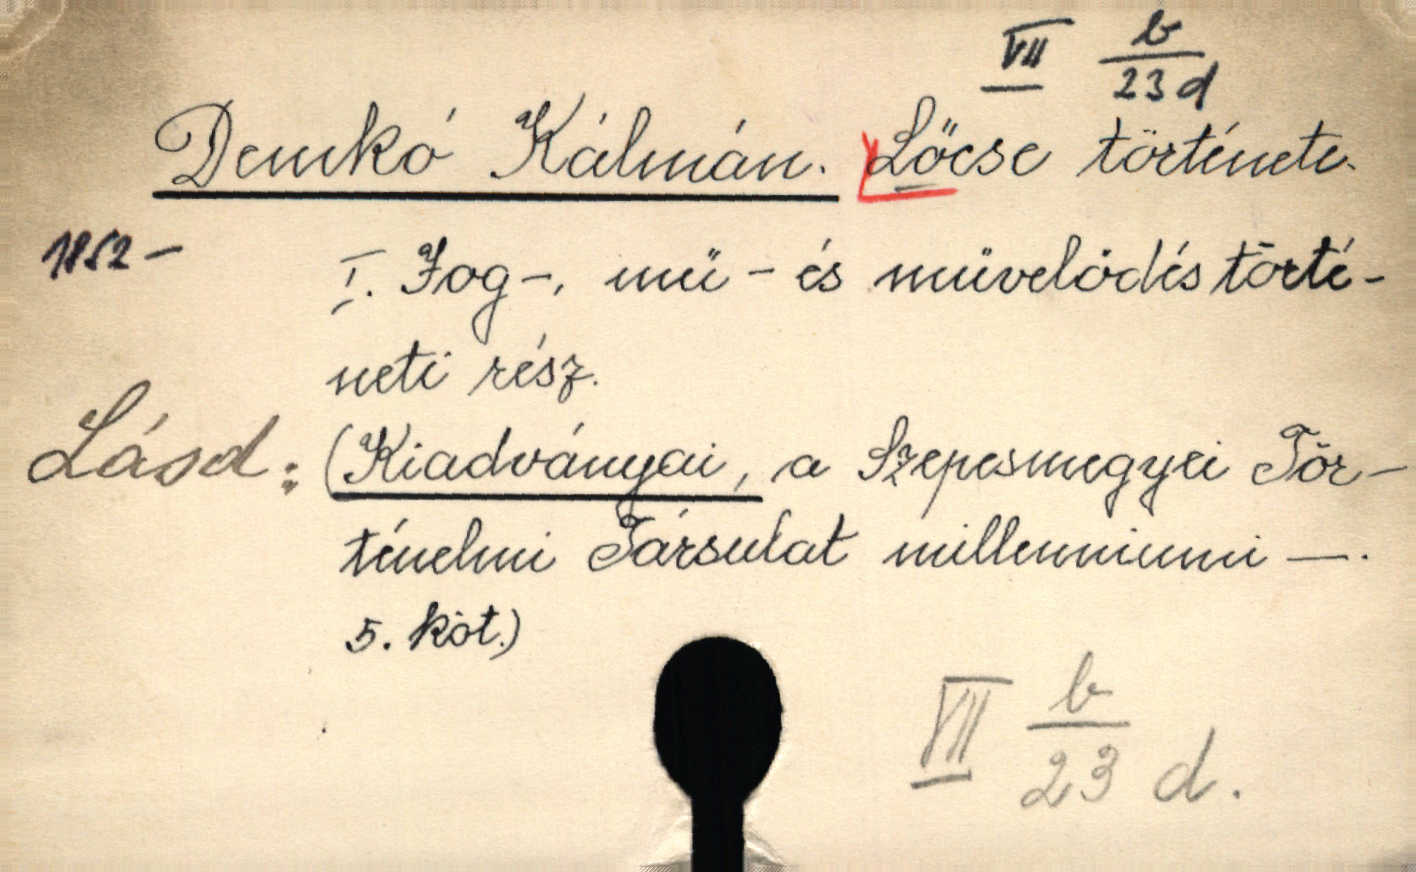 VII b/23 d
Demkó Kálmán. Lőcse története.
1852-
I. Jog-, mü- és müvelődés törté-
neti rész.
Lásd: (Kiadványai, a Szepesmegyei Tör-
ténelmi Társulat millenniumi —.
5. köt.)
VII b/23 d.